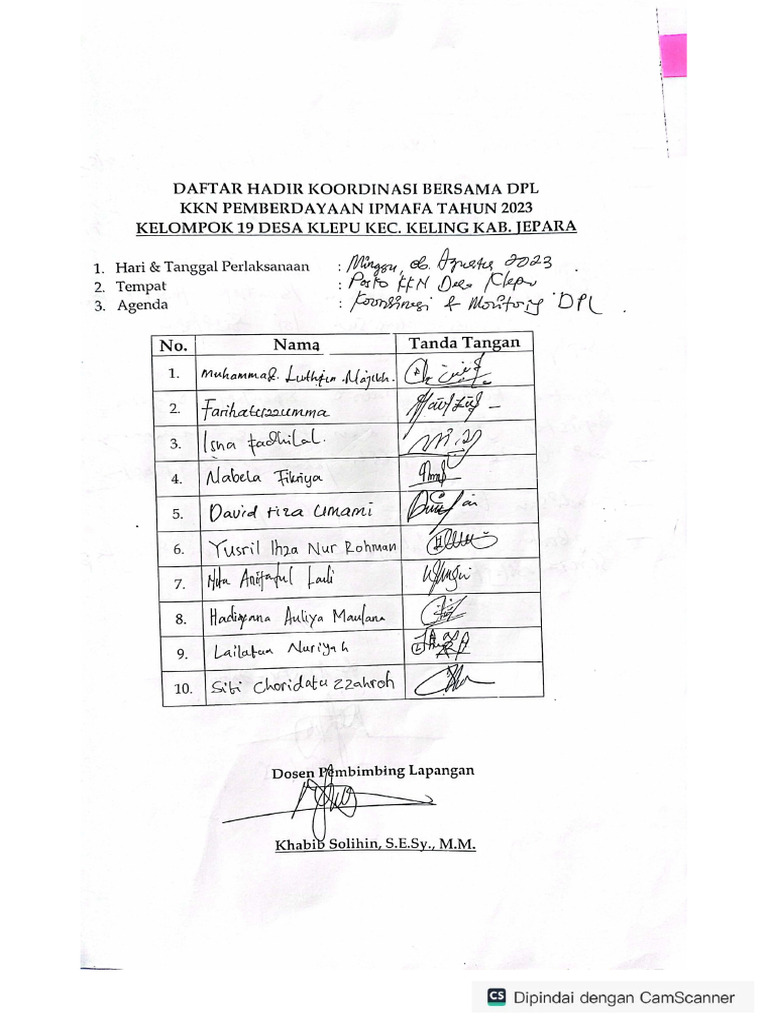 DAFTAR HADIR KOORDINASI BERSAMA DPL
KKN PEMBERDAYAAN IPMAFA TAHUN 2023
KELOMPOK 19 DESA KLEPU KEC. KELING KAB. JEPARA
1. Hari & Tanggal Perlaksanaan : Minggu, 06. Agustus 2023.
2. Tempat : Posko KKN Desa Klepu
3. Agenda : Koordinasi & Monitoring DPL.
No. Nama Tanda Tangan
1. Muhammad. Luthfin Najikh.
2. Farihatussumma
3. Isna Fadhilal.
4. Nabela Fikriya
5. David Fiza Umami
6. Yusril Ihza Nur Rohman
7. Laili
8. Auliya Maulana
9. Lailatun Nuriyah
10. Siti Choridatu zzahroh
Dosen Pembimbing Lapangan
Khabib Solihin, S.E.Sy., M.M.
CS Dipindai dengan CamScanner